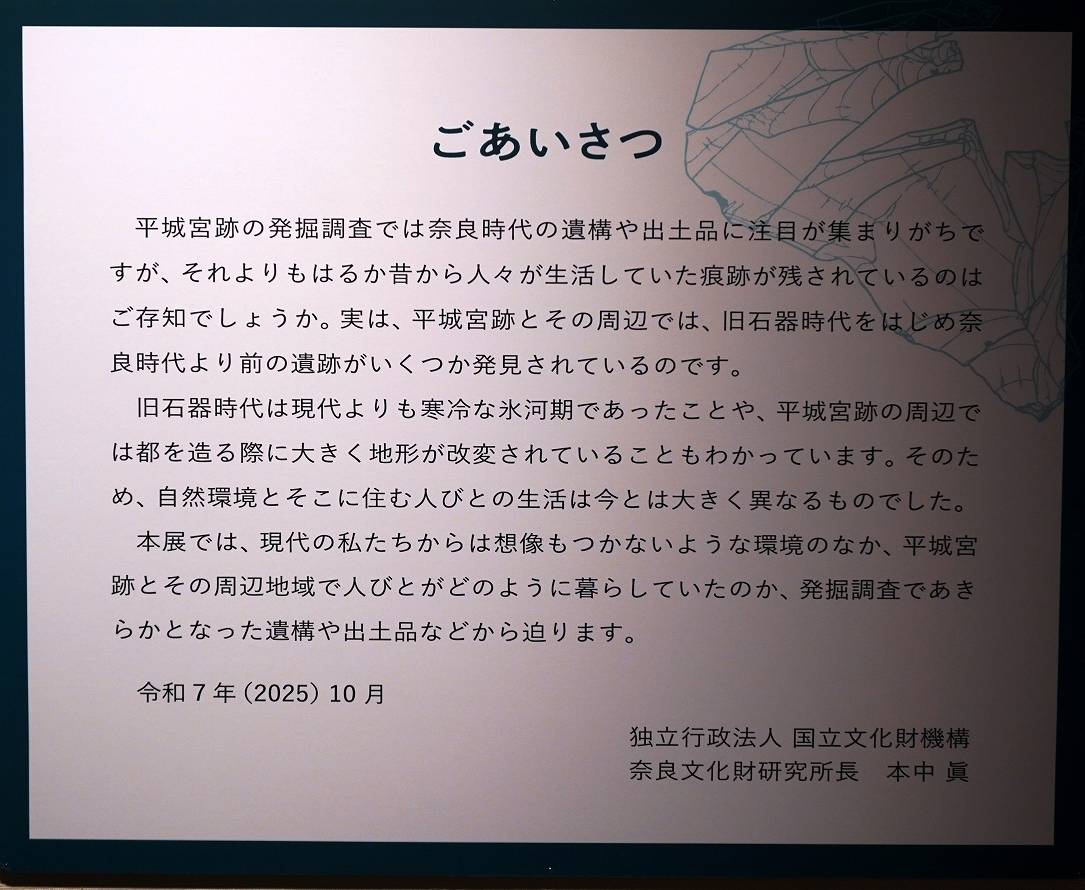 ごあいさつ
平城宮跡の発掘調査では奈良時代の遺構や出土品に注目が集まりがちで
すが、それよりもはるか昔から人々が生活していた痕跡が残されているのは
ご存知でしょうか。実は、平城宮跡とその周辺では、旧石器時代をはじめ奈
良時代より前の遺跡がいくつか発見されているのです。
旧石器時代は現代よりも寒冷な氷河期であったことや、平城宮跡の周辺で
は都を造る際に大きく地形が改変されていることもわかっています。そのた
め、自然環境とそこに住む人びとの生活は今とは大きく異なるものでした。
本展では、現代の私たちからは想像もつかないような環境のなか、平城宮
跡とその周辺地域で人びとがどのように暮らしていたのか、発掘調査であき
らかとなった遺構や出土品などから迫ります。
令和7年(2025)10月
独立行政法人 国立文化財機構
奈良文化財研究所長　本中 眞